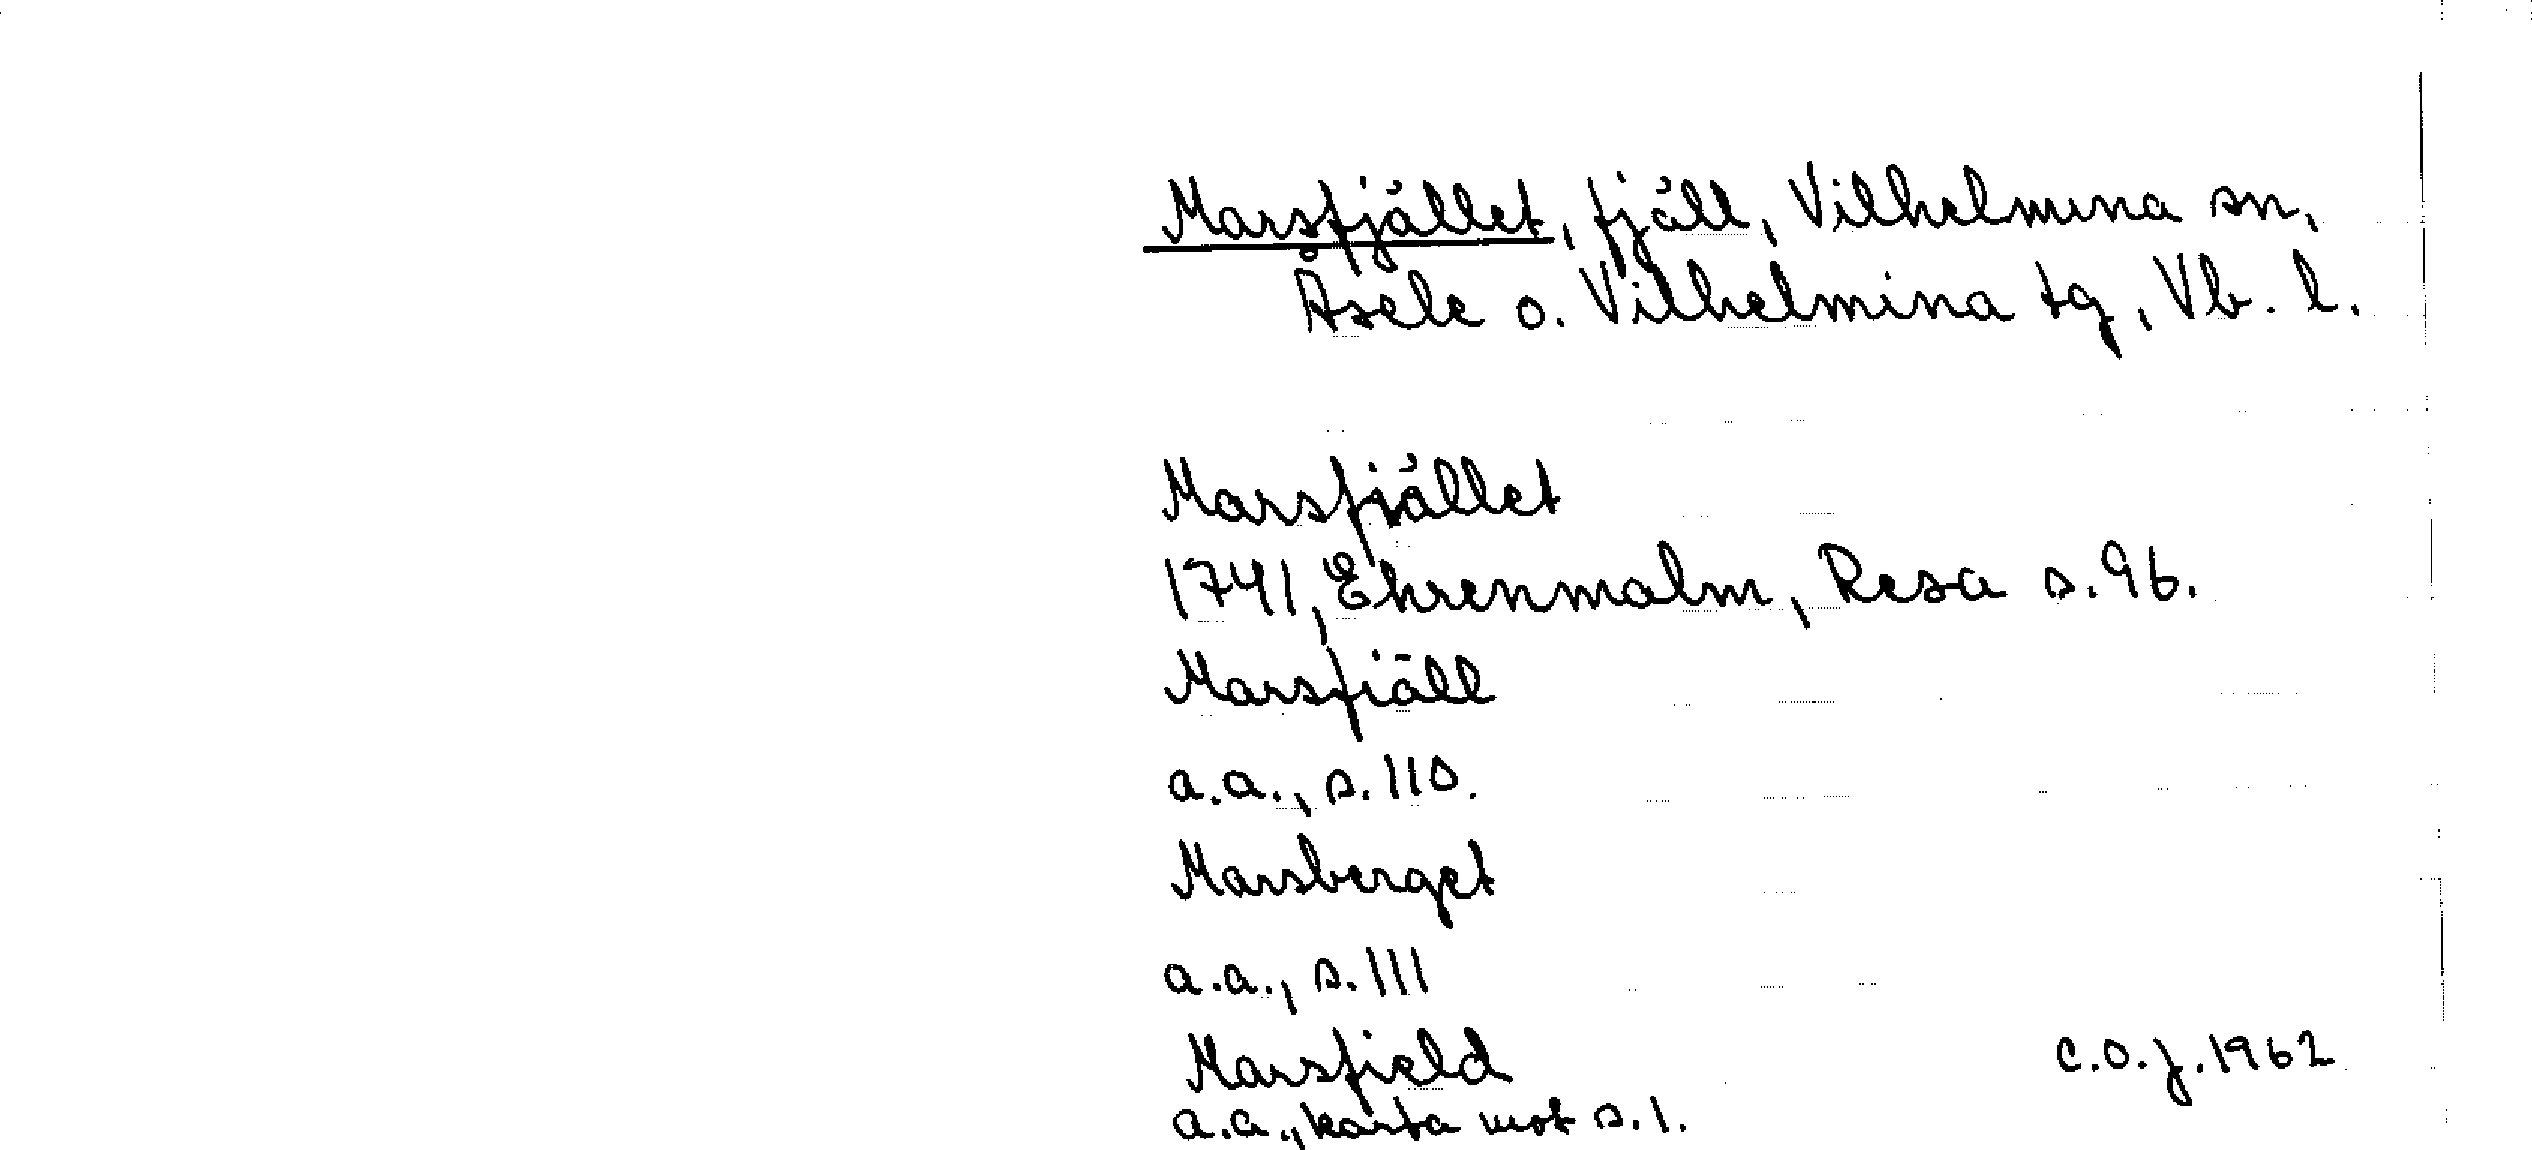 Marsfjället, fjäll, Vilhelmina sn,
Åsele o. Vilhelmina tg, Vb. l.
Marsfjället
1741, Ehrenmalm, Resa s. 96.
Marsfiäll
a.a., s. 110.
Marsberget
a.a., s. 111
Marsfield
C.O.J. 1962
a.a., karta mot s. 1.